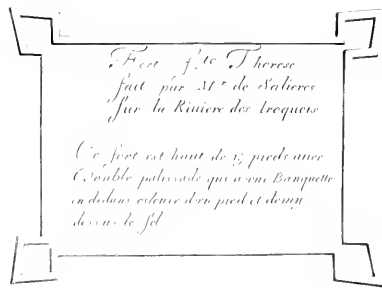 Fort S.te Therese
fait par Mr de Salieres
sur la Riuiere des Iroquois
Ce fort est haut de 15 pieds auec
Double palissade qui a vne Banquette
en dedans esleuée d'vn pied et demy
dessus le sol